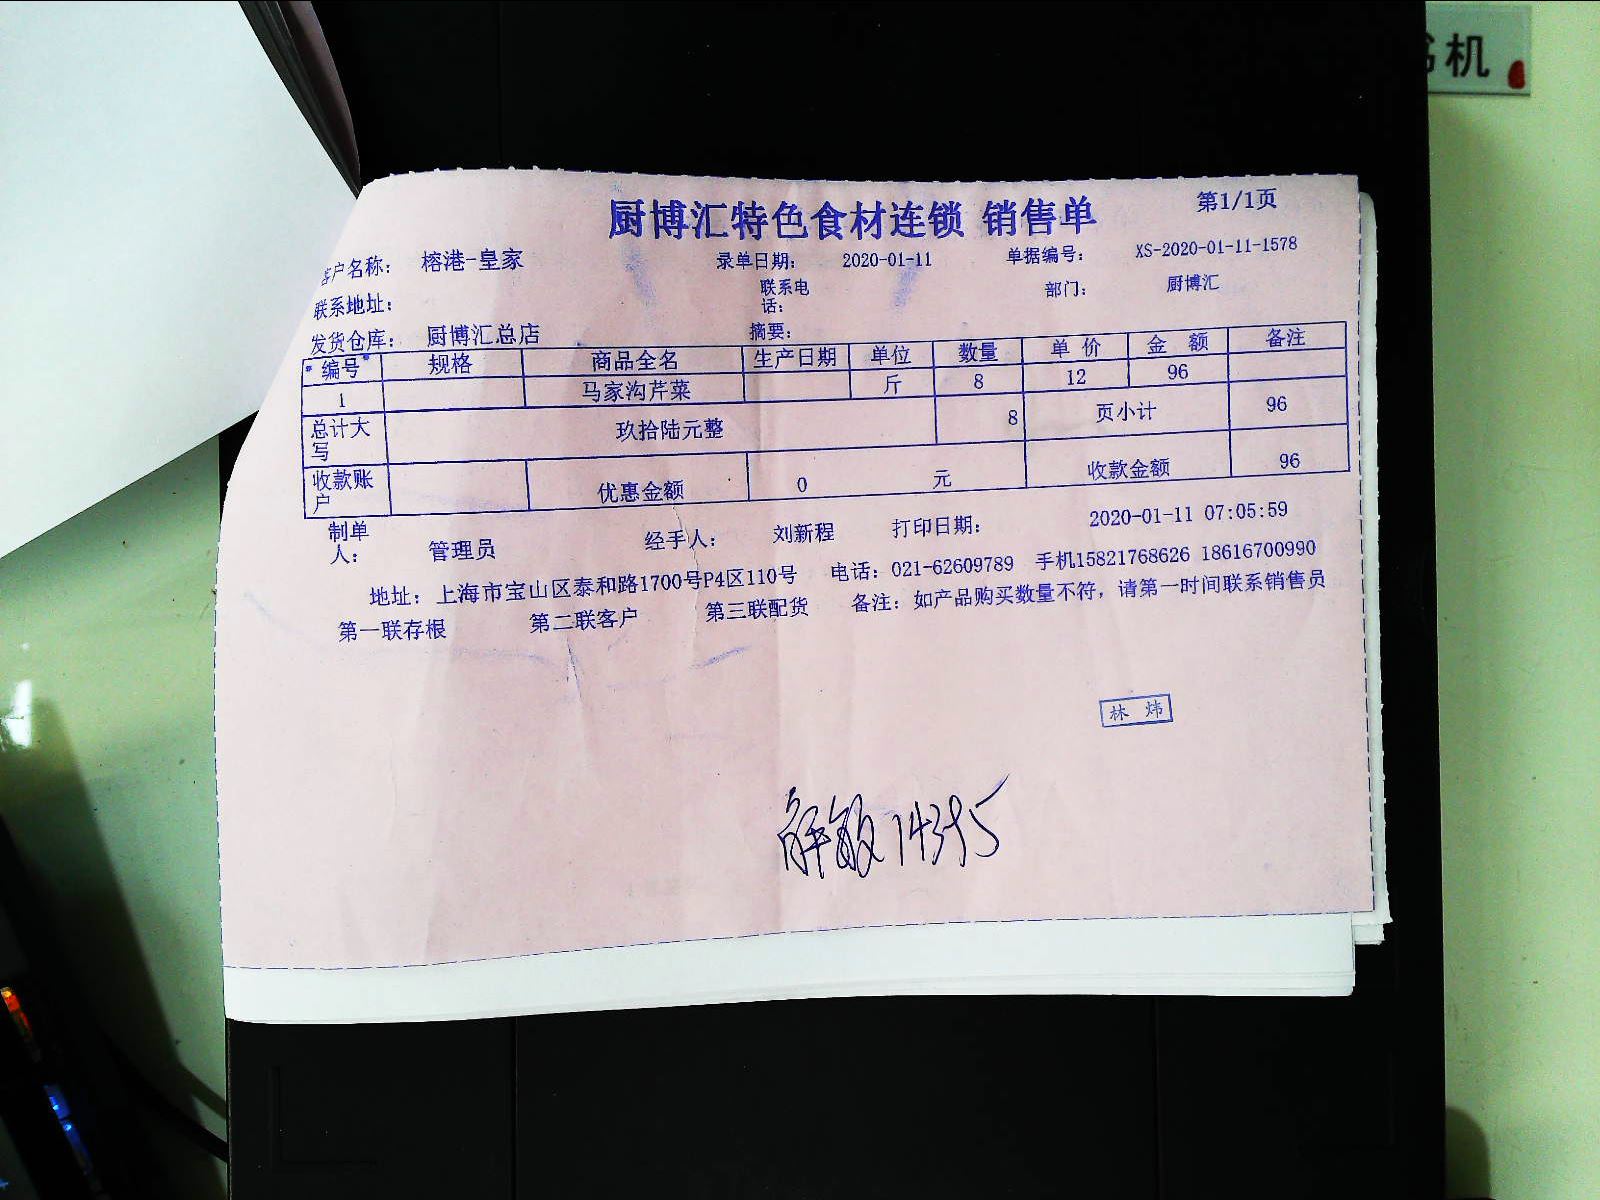 机
厨博汇特色食材连锁 销售单 第1/1页
客户名称: 榕港-皇家 录单日期: 2020-01-11 单据编号: XS-2020-01-11-1578
联系地址: 联系电话: 部门: 厨博汇
发货仓库: 厨博汇总店 摘要:
编号 规格 商品全名 生产日期 单位 数量 单价 金额 备注
1 马家沟芹菜 斤 8 12 96
总计大写 玖拾陆元整 8 页小计 96
收款账户 优惠金额 0 元 收款金额 96
制单人: 管理员 经手人: 刘新程 打印日期: 2020-01-11 07:05:59
地址: 上海市宝山区泰和路1700号P4区110号 电话: 021-62609789 手机15821768626 18616700990
第一联存根 第二联客户 第三联配货 备注: 如产品购买数量不符,请第一时间联系销售员
林 炜